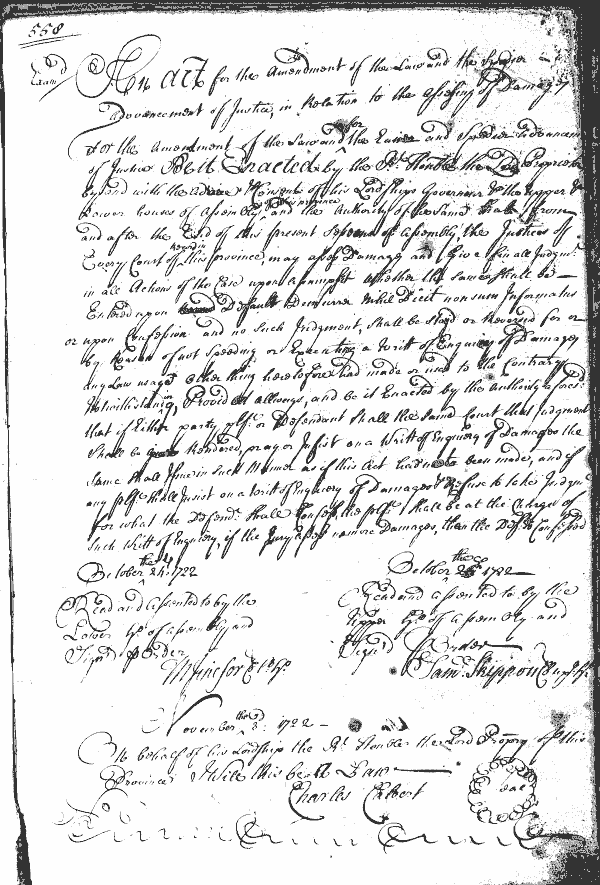 558
Exam.d
An act for the Amendment of the Law and the Speedier
Advancement of Justice, in Relation to the assessing of Damages
For the Amendment of the Law and for the Easier and Speedier
of Justice Be it Enacted by the Rt. Honble the Lord Proprietor
by and with the Advice & Consent of his Lordships Governour & the upper &
Lower houses of Assembly and the Authority of the same that from
and after the End of this present Session of Assembly, the Justices of
Every Court of Record in this province, may assess Damages and Give final Judgmt.
in all Actions of the Case upon assumpsit whether the same shall be
Entered upon Default Demurrer Nihil Dicit non sum Informatus
or upon Confession and no such Judgment, shall be staid or Reversed for or
by Reason of not Speeding or Executing a Writt of Enquiry of Damages
any Law usage or other thing heretofore had made or used to the Contrary
Notwithstanding Provided allways, and be it Enacted by the Authority aforesd.
that if Either party pltf. or Defendant shall the same Court that Judgment
shall be Rendered, pray or Insist on a Writt of Enquiry of Damages the
same shall Issue in such Manner as if this Act had not been made, and if
any pltf. shall insist on a Writt of Enquiry of Damages & Refuse to take Judgmt.
for what the Defendt. shall Confess, the pltf. shall be at the Charge of
such Writt of Enquiry, if the Jury assess no more Damages, than the Deft. Confessed
October the 24th. 1722
Read and assented to by the
Lower hs. of assembly and
Signd. p Order
October the 1722
Read and assented to by the
upper hs. of assembly and
Signd. p Order
Saml. Skippon Cl up. hs.
November the 3d. 1722
On behalf of his Lordship the Rt. Honble the Lord Propry. of this
Province I Will this be a Law
Charles Calvert
Seal